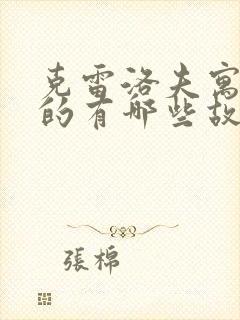 克雷洛夫寓
的有哪些故
張棉